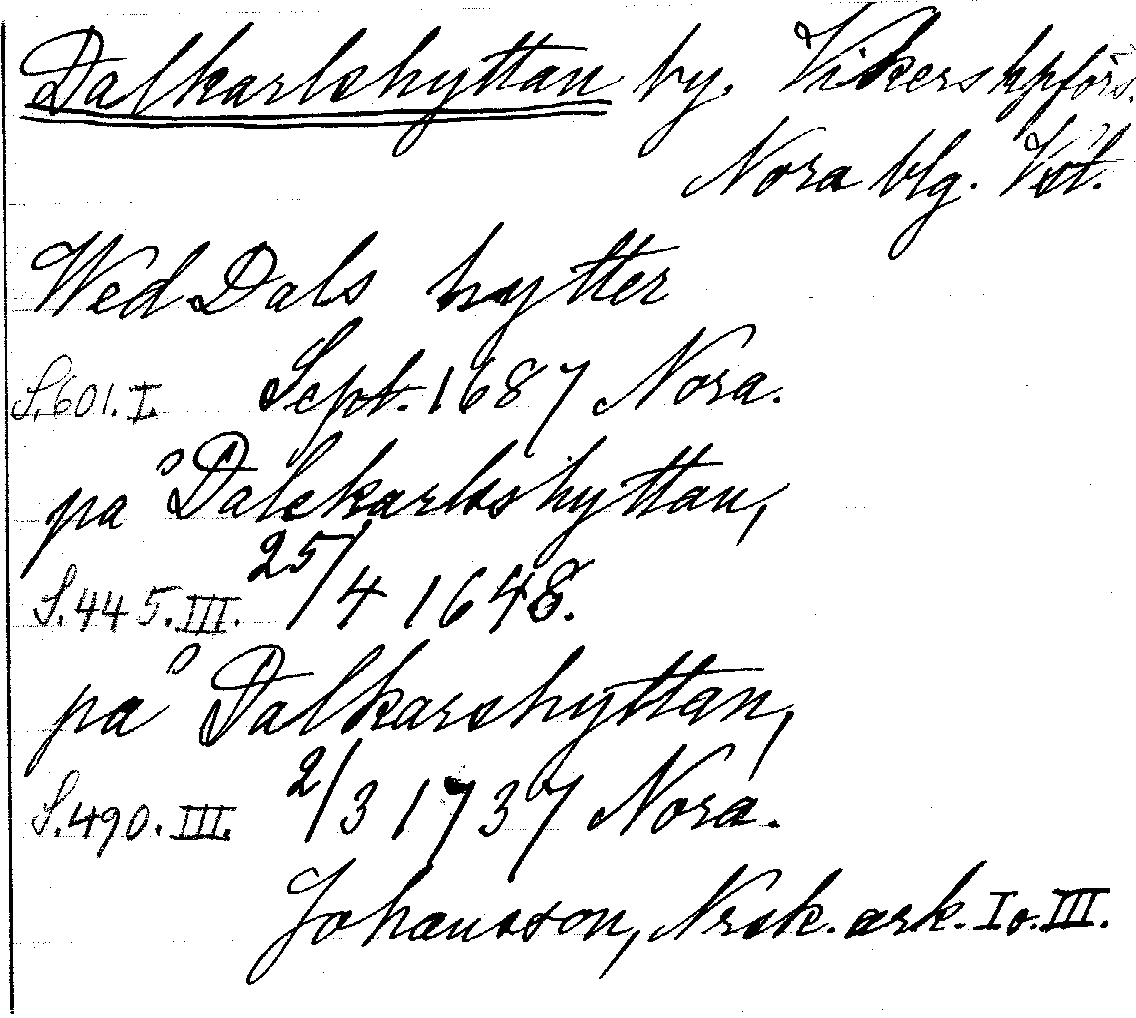 Dalkarlshyttan by. Vikers kpförs.
Nora blg. Vstl.
Wed Dals hytter
S.601.I. Sept. 1687 Nora.
på Dalekarlsshyttan,
S.445.III. 25/4 1648.
på Dalkarshyttan,
S.490.III. 2/3 1737 Nora.
Johansson, Nrsk. ark. I o. III.